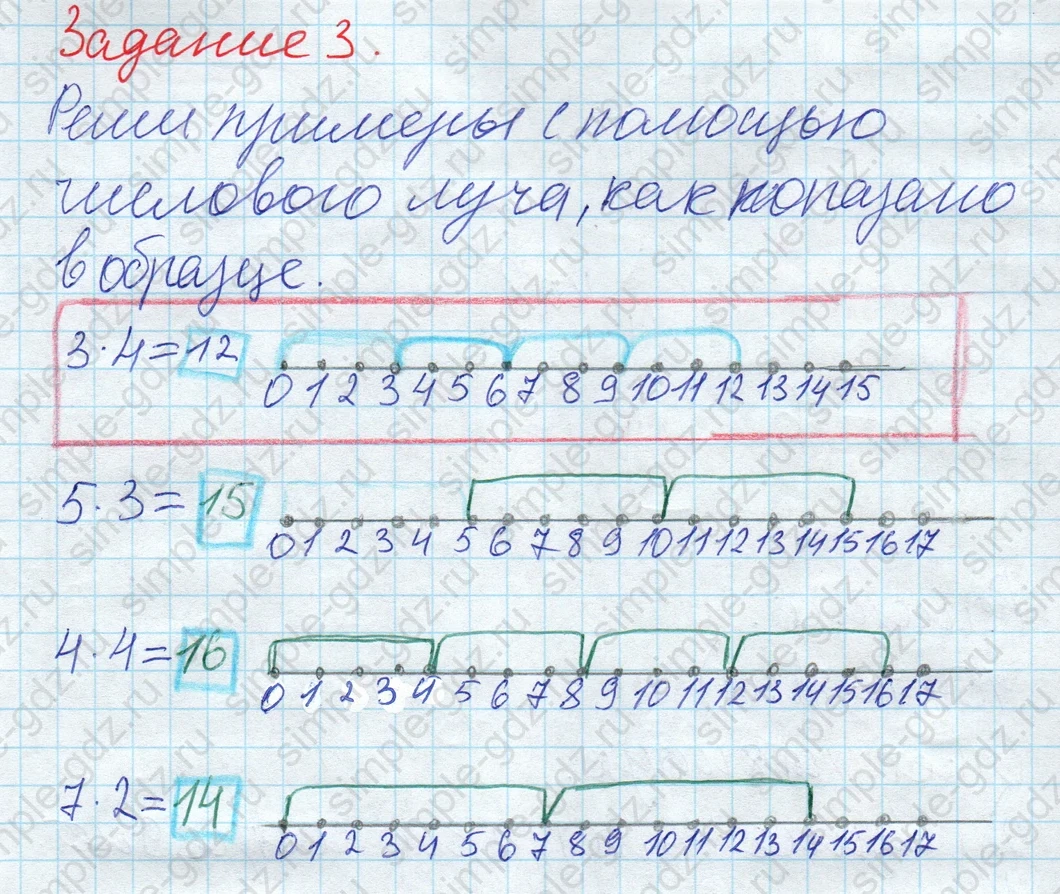 Задание 3.
Реши примеры с помощью
числового луча, как показано
в образце.
3·4=12
0 1 2 3 4 5 6 7 8 9 10 11 12 13 14 15
5·3=15
0 1 2 3 4 5 6 7 8 9 10 11 12 13 14 15 16 17
4·4=16
0 1 2 3 4 5 6 7 8 9 10 11 12 13 14 15 16 17
7·2=14
0 1 2 3 4 5 6 7 8 9 10 11 12 13 14 15 16 17
simple-gdz.ru